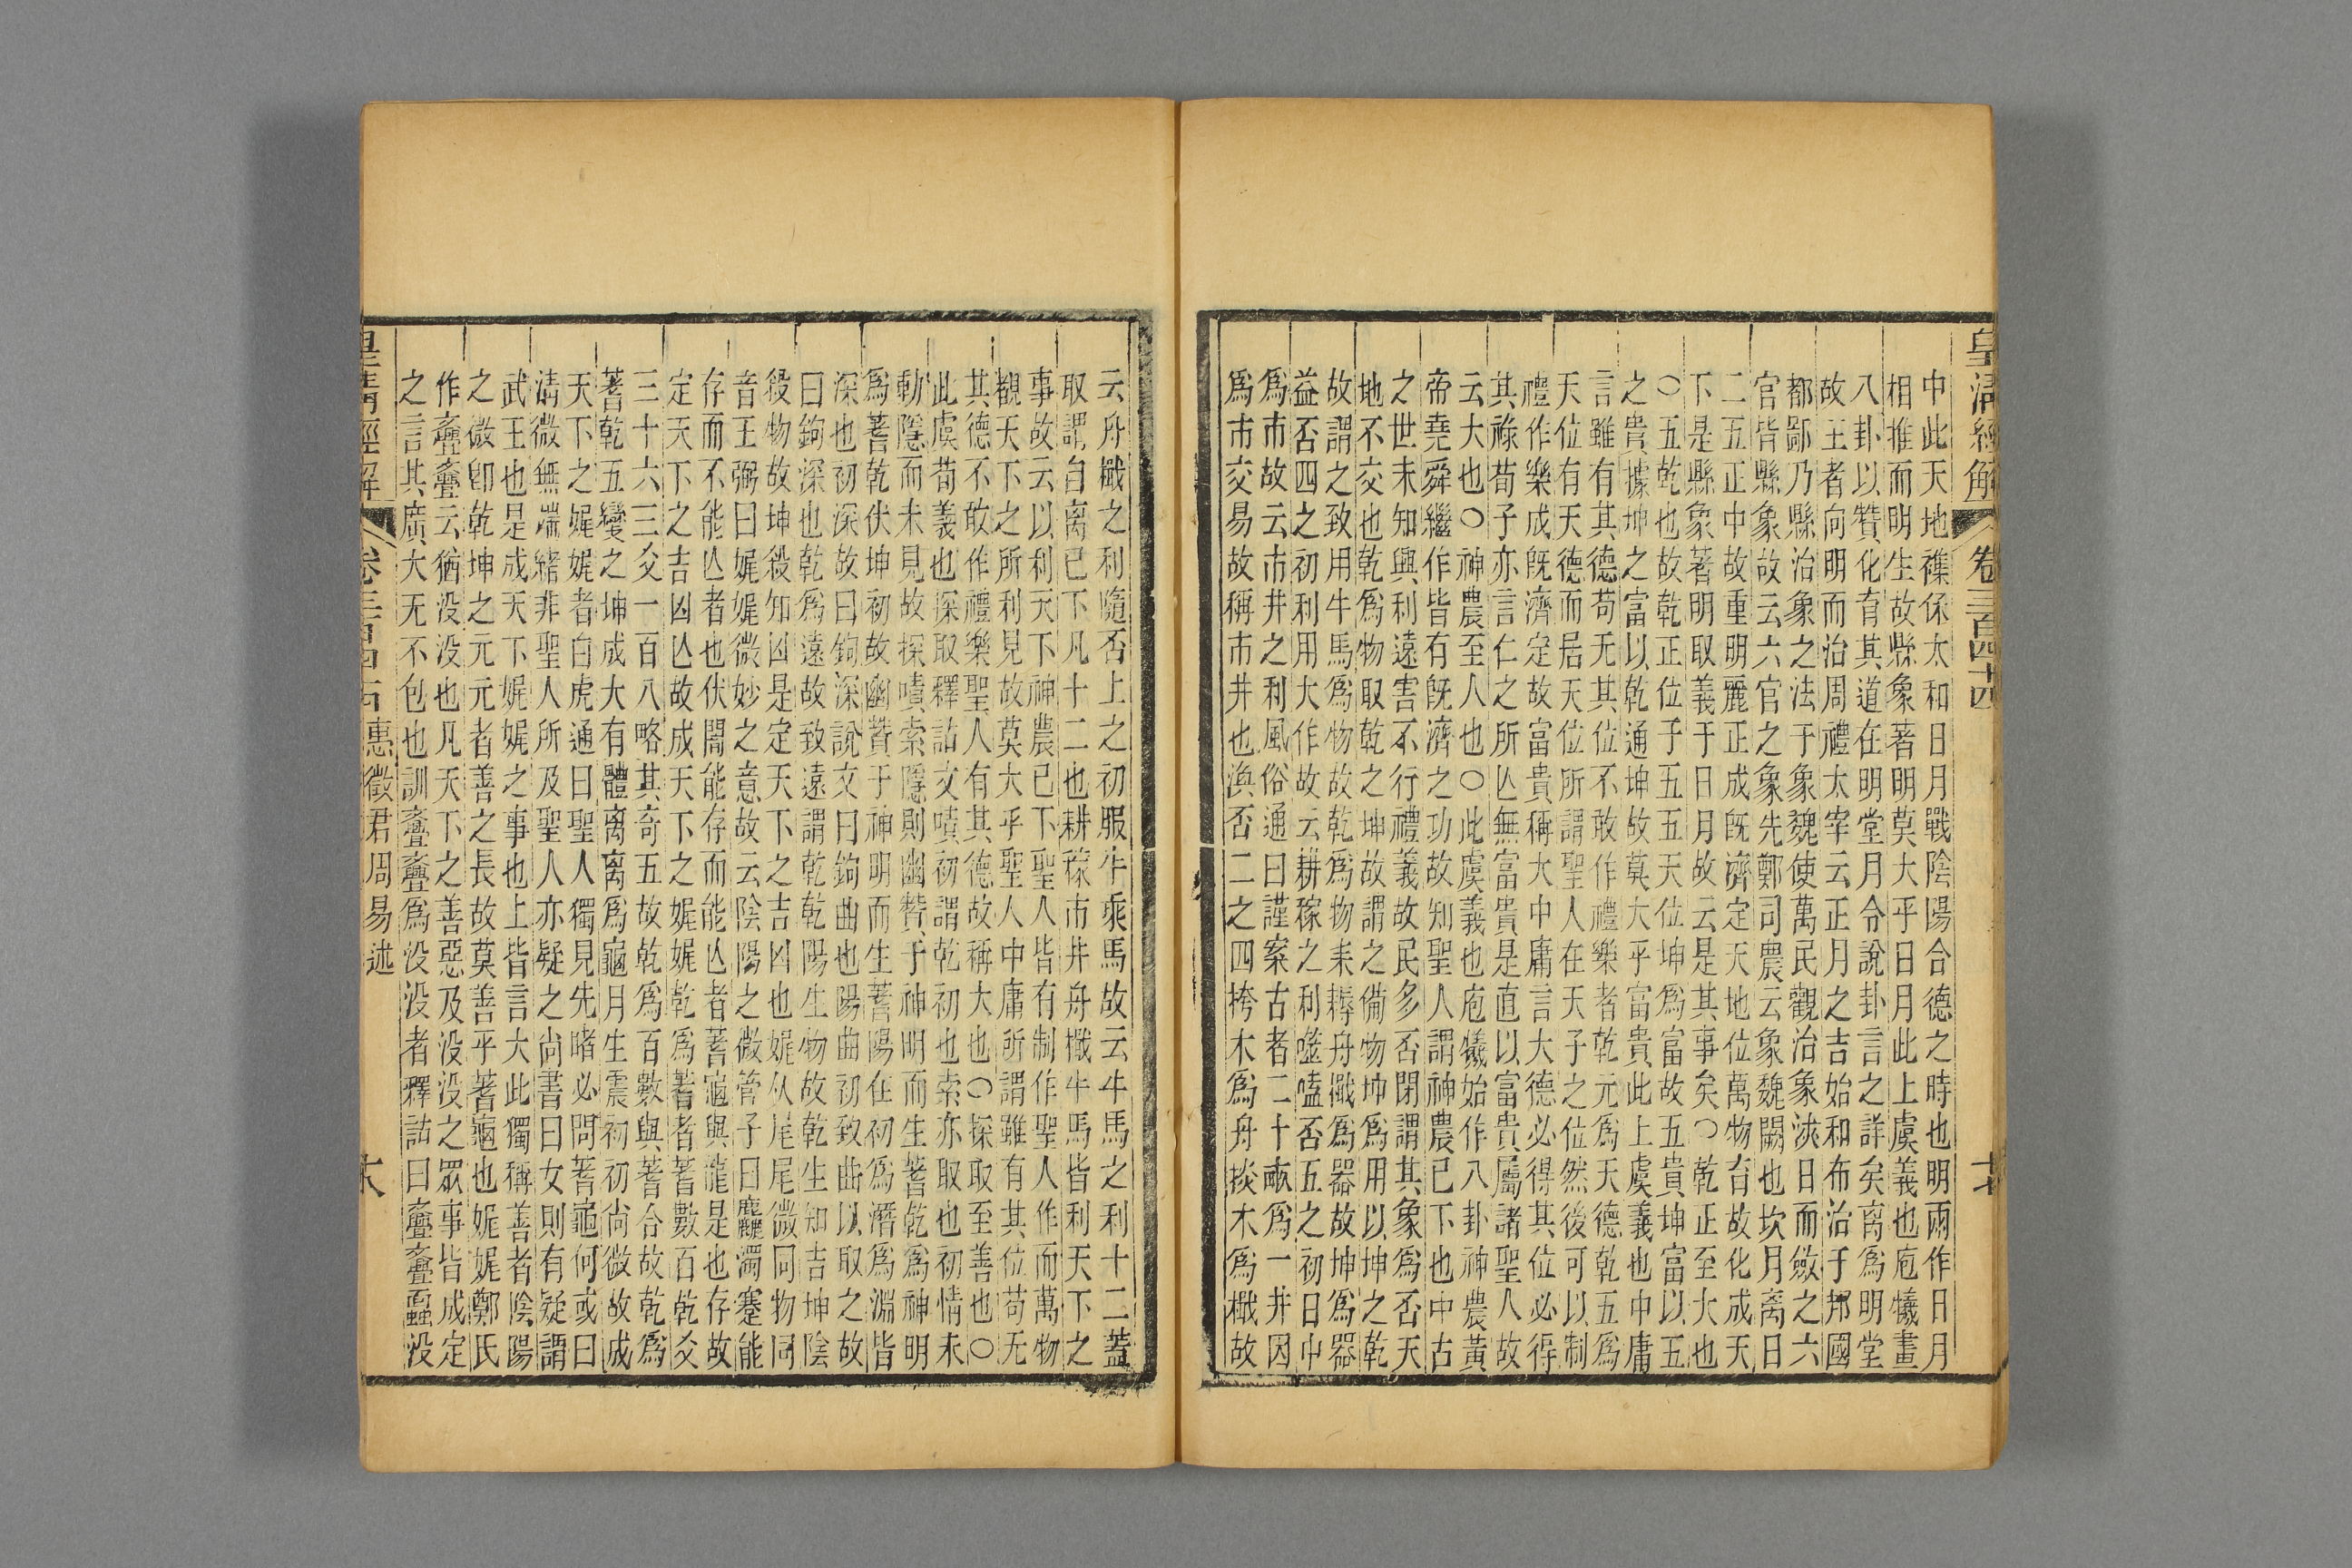 皇清經解 卷三百四十四 十七
中此天地襍保太和日月戰陰陽合德之時也明兩作日月
相推而明生故縣象著明莫大乎日月此上虞義也庖犧畫
八卦以贊化育其道在明堂月令說卦言之詳矣离爲明堂
故王者向明而治周禮太宰云正月之吉始和布治于邦國
都鄙乃縣治象之法于象魏使萬民觀治象浹日而斂之六
官皆縣象故云六官之象先鄭司農云象魏闕也坎月离日
二五正中故重明麗正成旣濟定天地位萬物育故化成天
下是縣象著明取義于日月故云是其事矣○乾正至大也
○五乾也故乾正位于五五天位坤爲富故五貴坤富以五
之貴據坤之富以乾通坤故莫大乎富貴此上虞義也中庸
言雖有其德苟无其位不敢作禮樂者乾元爲天德乾五爲
天位有天德而居天位所謂聖人在天子之位然後可以制
禮作樂成旣濟定故富貴稱大中庸言大德必得其位必得
其祿荀子亦言仁之所亾無富貴是直以富貴屬諸聖人故
云大也○神農至人也○此虞義也庖犧始作八卦神農黃
帝堯舜繼作皆有旣濟之功故知聖人謂神農已下也中古
之世未知興利遠害不行禮義故民多否閉謂其象爲否天
地不交也乾爲物取乾之坤故謂之備物坤爲用以坤之乾
故謂之致用牛馬爲物故乾爲物耒耨舟檝爲器故坤爲器
益否四之初利用大作故云耕稼之利噬嗑否五之初日中
爲市故云市井之利風俗通曰謹案古者二十畝爲一井因
爲市交易故稱市井也渙否二之四挎木爲舟掞木爲檝故
云舟檝之利隨否上之初服牛乘馬故云牛馬之利十二蓋
取謂自离已下凡十二也耕稼市井舟檝牛馬皆利天下之
事故云以利天下神農已下聖人皆有制作聖人作而萬物
觀天下之所利見故莫大乎聖人中庸所謂雖有其位苟无
其德不敢作禮樂聖人有其德故稱大也○探取至善也○
此虞荀義也探取釋詁文嘖初謂乾初也索亦取也初情未
動隱而未見故探嘖索隱則幽贊于神明而生蓍乾爲神明
爲蓍乾伏坤初故幽贊于神明而生蓍陽在初爲潛爲淵皆
深也初深故曰鉤深說文曰鉤曲也陽曲初致曲以取之故
曰鉤深也乾爲遠故致遠謂乾乾陽生物故乾生知吉坤陰
殺物故坤殺知凶是定天下之吉凶也娓从尾尾微同物同
音王弼曰娓娓微妙之意故云陰陽之微管子曰龘濁蹇能
存而不能亾者也伏闇能存而能亾者蓍龜與龍是也存故
定天下之吉凶亾故成天下之娓娓乾爲蓍者蓍數百乾爻
三十六三爻一百八略其奇五故乾爲百數與蓍合故乾爲
蓍乾五變之坤成大有體离离爲龜月生震初初尙微故成
天下之娓娓者白虎通曰聖人獨見先睹必問蓍龜何或曰
淸微無端緖非聖人所及聖人亦疑之尙書曰女則有疑謂
武王也是成天下娓娓之事也上皆言大此獨稱善者陰陽
之微卽乾坤之元元者善之長故莫善乎蓍龜也娓娓鄭氏
作亹亹云猶没没也凡天下之善惡及没没之眾事皆成定
之言其廣大无不包也訓亹亹爲没没者釋詁曰亹亹蠠没
皇清經解 卷三百四十四 惠徵君周易述